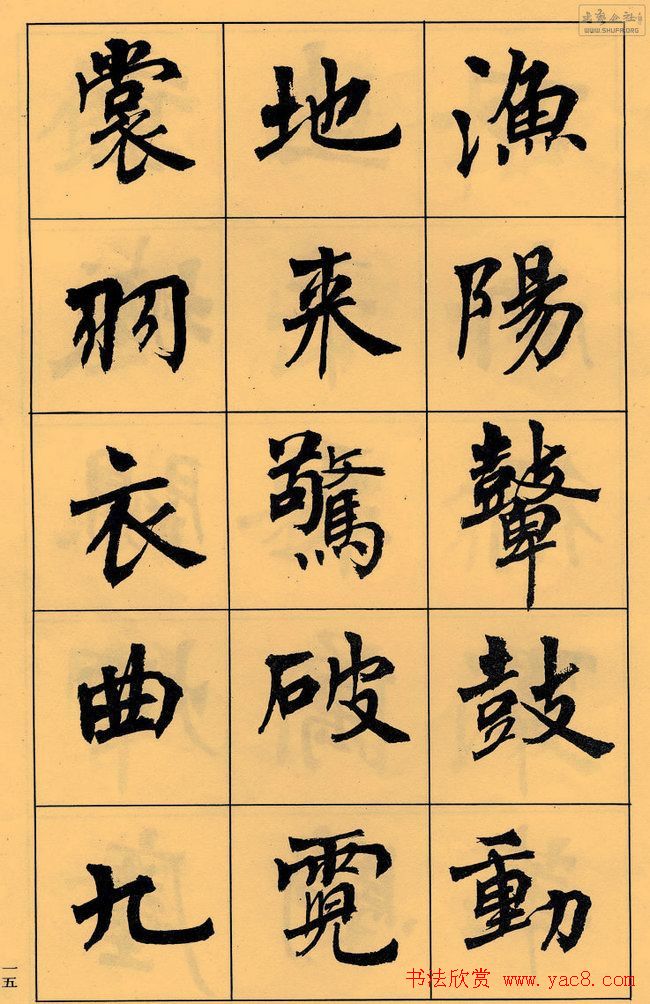 漁陽鼙鼓動
地来驚破霓
裳羽衣曲九
一五
书法欣赏 www.yac8.com
WWW.SHUFA.ORG